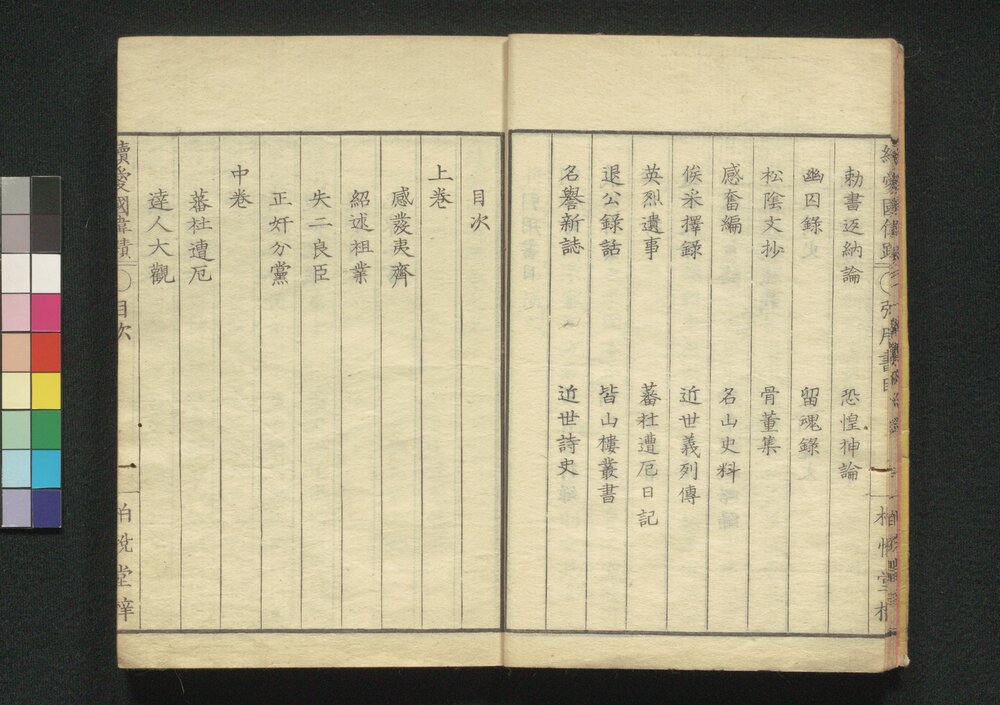 勅書返納論 恐惶神論
幽囚錄 留魂錄
松陰文抄 骨董集
感奮編 名山史料
俟采擇錄 近世義列傳
英烈遺事 蕃社遭厄日記
退公錄話 皆山樓叢書
名譽新誌 近世詩史
目次
上巻
感發夷齊
紹述祖業
失二良臣
正奸分黨
中巻
蕃社遭厄
達人大觀
續愛國偉績 目次 一 柏悅堂梓